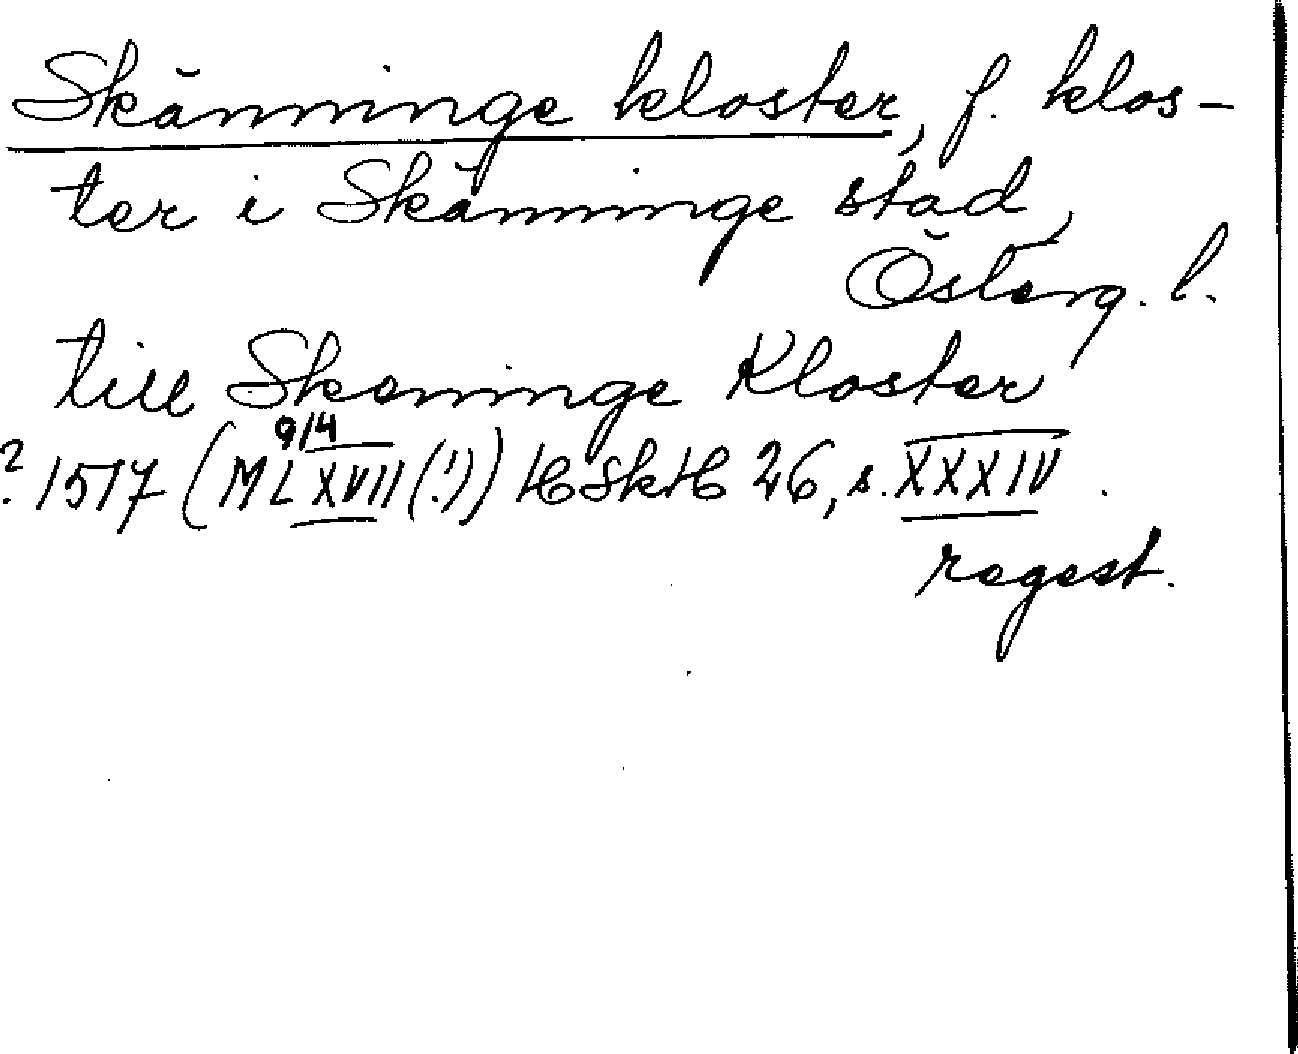 Skänninge kloster, f. klos-
ter i Skänninge stad,
Österg. l.
till Skeninge Kloster
9/4
? 1517 (MLXVII(!)) HSkH 26, s. XXXIV.
regest.